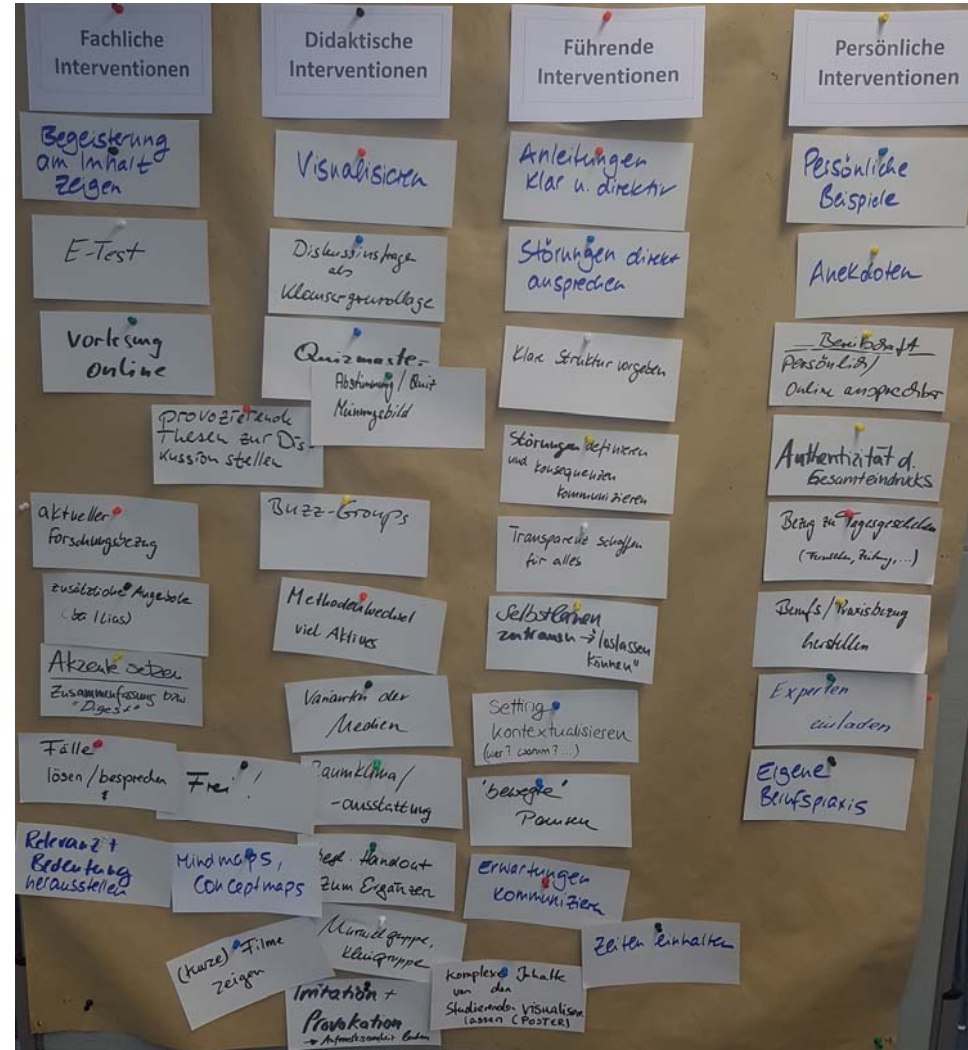 Fachliche
Interventionen
Begeisterung
am Inhalt
zeigen
E-Test
Vorlesung
online
provozierende
Thesen zur Dis-
kussion stellen
aktueller
Forschungsbezug
zusätzliche Angebote
(bei Ilias)
Akzente setzen
Zusammenfassung bzw.
"Digest"
Fälle
lösen / besprechen
Frei!
Relevanz +
Bedeutung
herausstellen
Mindmaps,
Conceptmaps
(kurze) Filme
zeigen
Didaktische
Interventionen
Visualisieren
Diskussionsfragen
als
Klausurgrundlage
Abstimmung / Quiz
Meinungsbild
Buzz-Groups
Methodenwechsel
viel Aktives
Varianten der
Medien
Raumklima /
-ausstattung
Handout
zum Ergänzen
Murmelgruppe,
Kleingruppe
Irritation +
Provokation
→ Aufmerksamkeit
Führende
Interventionen
Anleitungen
klar u. direktiv
Störungen direkt
ansprechen
Klare Struktur vorgeben
Störungen definieren
und Konsequenzen
kommunizieren
Transparenz schaffen
für alles
Selbstlernen
zutrauen → "loslassen
können"
Setting
kontextualisieren
(wer? warum? ...)
"bewegte"
Pausen
Erwartungen
kommunizieren
Zeiten einhalten
Komplexe Inhalte
von den
Studierenden visualisieren
lassen (POSTER)
Persönliche
Interventionen
Persönliche
Beispiele
Anekdoten
Bereitschaft
persönlich /
Online ansprechbar
Authentizität d.
Gesamteindrucks
Bezug zu Tagesgeschehen
(Fernsehen, Zeitung, ...)
Berufs / Praxisbezug
herstellen
Experten
einladen
Eigene
Berufspraxis